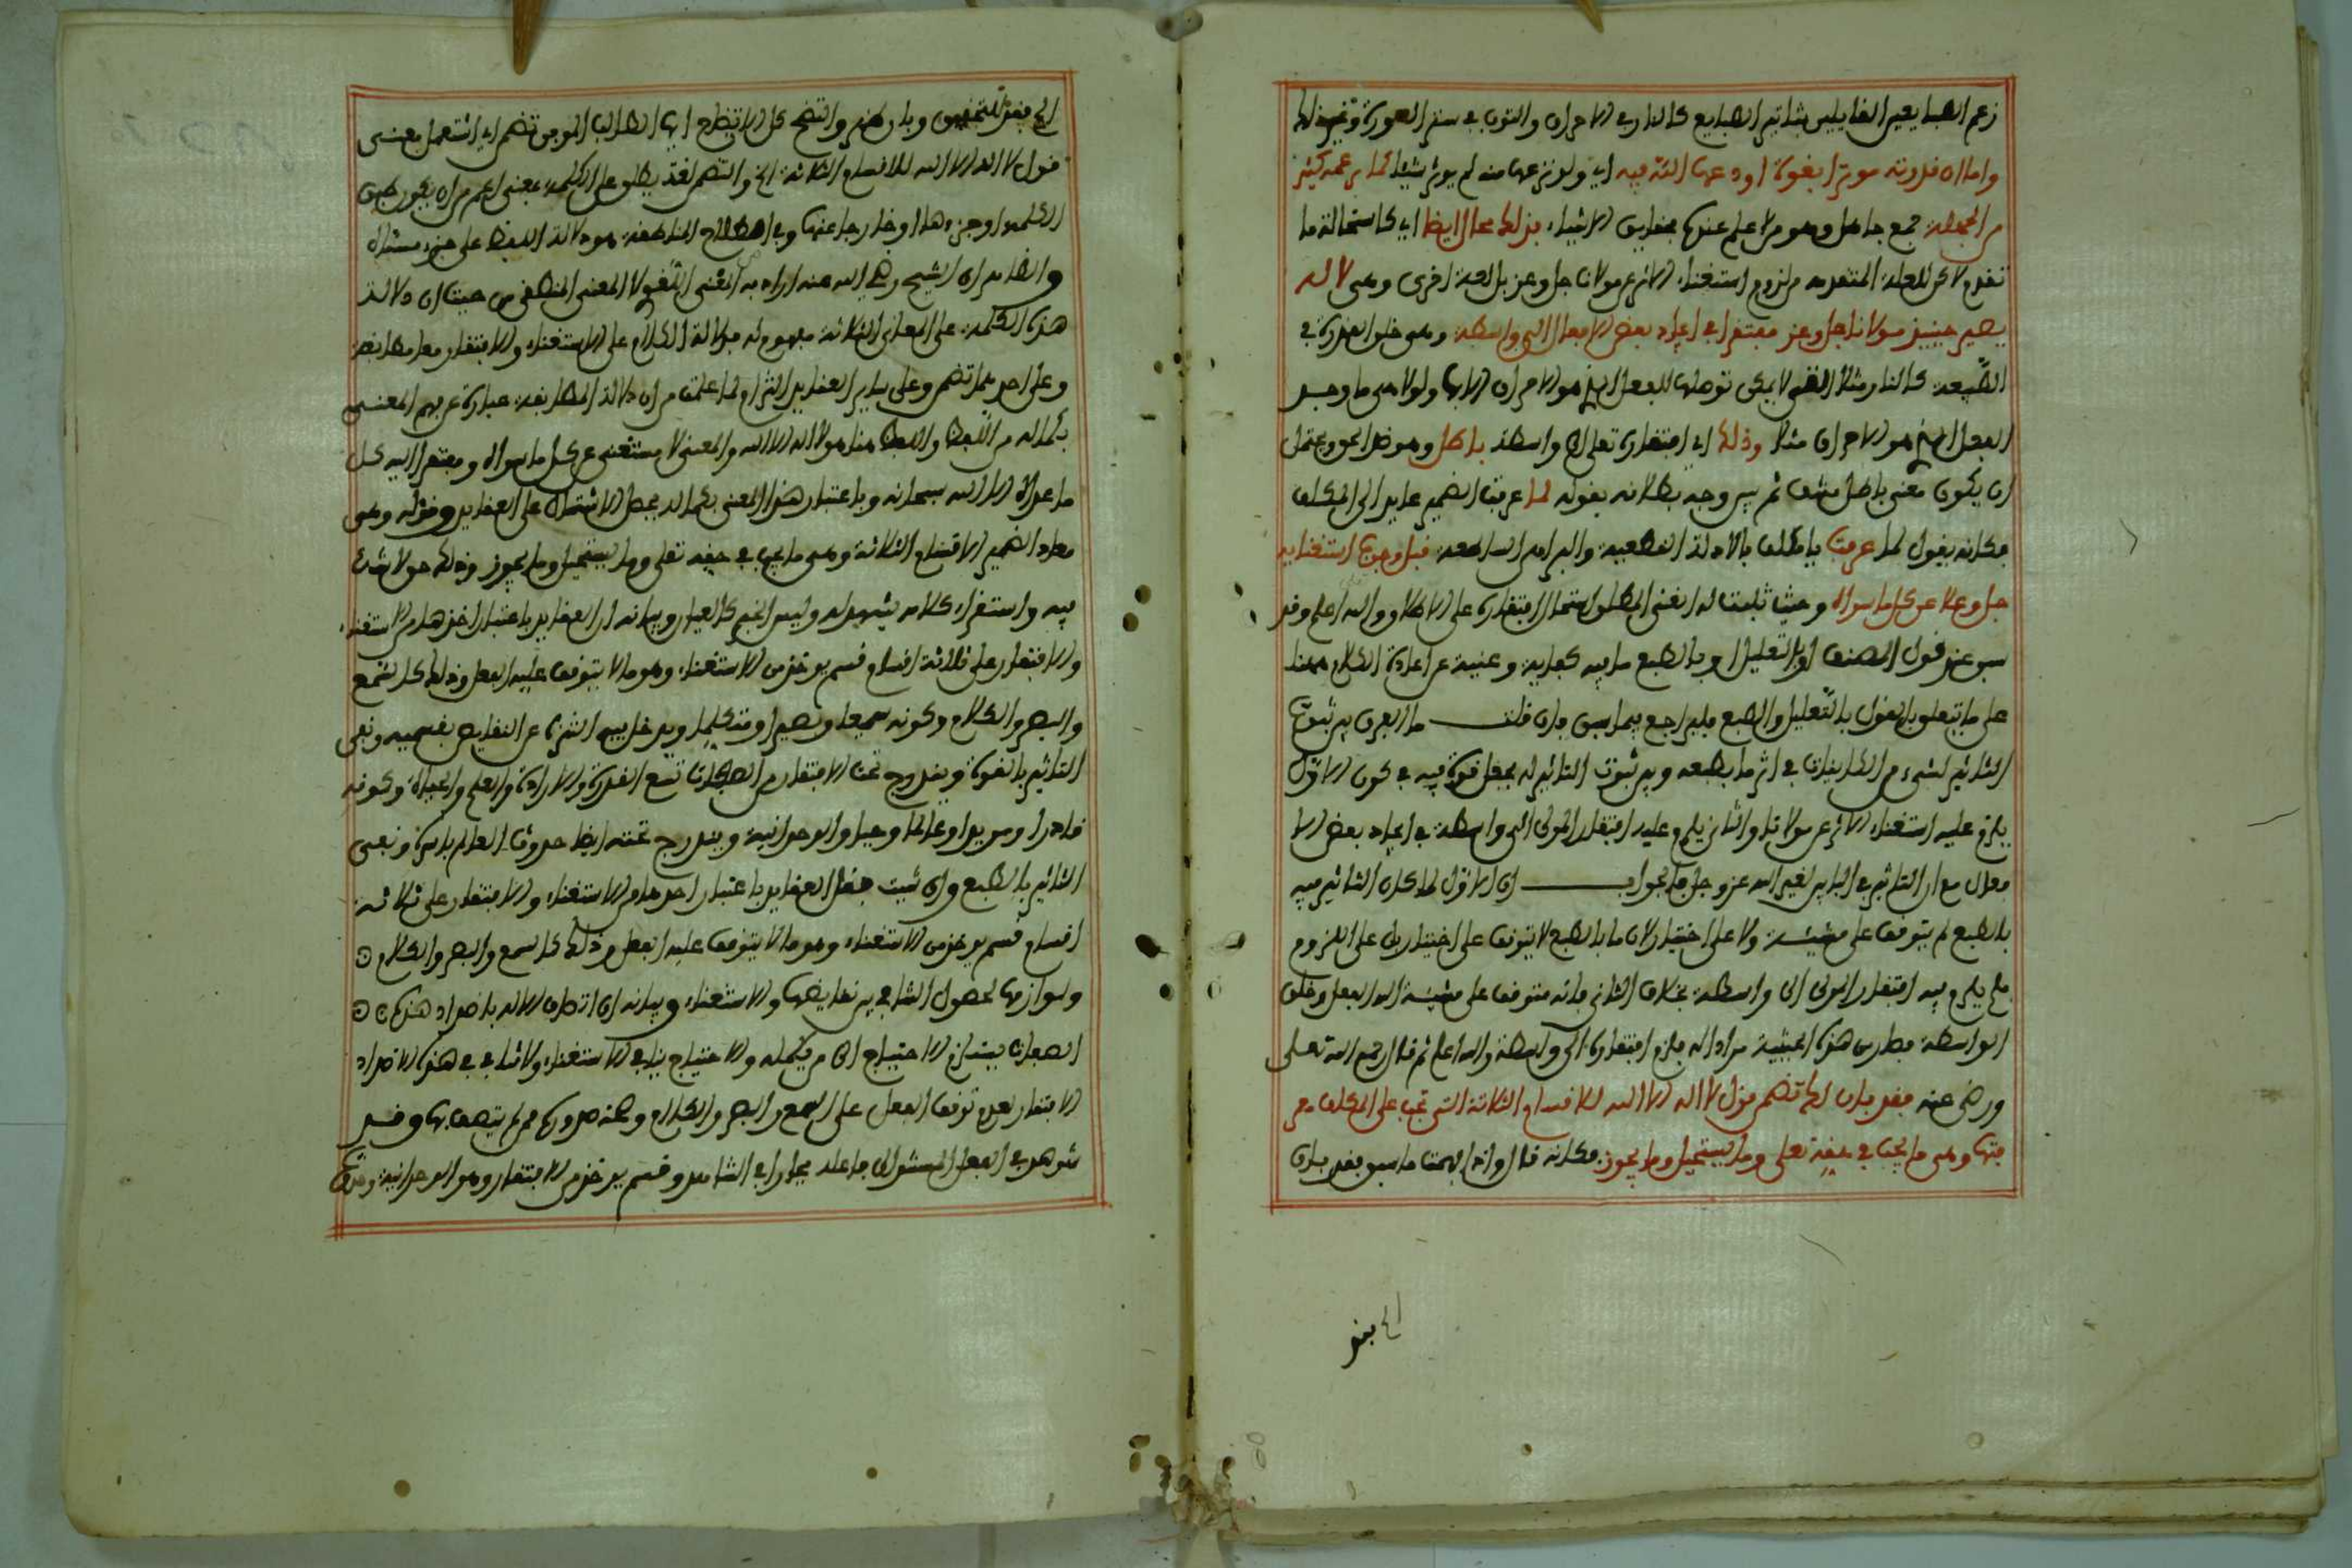 زعم الطبايعيين القايلين بتاثير الطبايع كالنار في الاحراق والثوب في ستر العورة وغير ذلك
واما ان قدرته موثرا بقوة اودعها الله فيه اي ولو نزعها منه لم يوثر شيئا كما يزعمه كثير
من الجهلة جمع جاهل وهو من لا علم عنده بحقايق الاشياء فذلك محال ايضا اي كاستحالة ما
تقدم لاكن للعلة المتقدمة من لزوم استغناء الاثر عن مولانا جل وعز بل لعلة اخرى وهي لانه
يصير حينيذ مولانا جل وعز مفتقرا في ايجاد بعض الافعال الى واسطة وهي خلق القدرة في
الطبيعة كالنار مثلا التي لا يمكن توصلها للفعل الذي هو الاحراق الا بها ولولا هي ما وجد
الفعل الذي هو الاحراق مثلا وذلك اي افتقاره تعالى الى واسطة باطل وهو ضد الحق ويحتمل
ان يكون معنى باطل منتف ثم بين وجه بطلانه بقوله لما عرفت الضمير عايد الى المكلف
فكانه يقول لما عرفت يا مكلف بالادلة القطعية والبراهين الساطعة قبل وجوب استغنايه
جل وعلا عن كل ما سواه وحيث ثبت له الغنى المطلق استحال افتقاره على الاطلاق والله اعلم وقد
سبق عند قول المصنف او بالتعليل او بالطبع ما فيه كفاية وغنية عن اعادة الكلام هنا
على ما يتعلق بالقول بالتعليل والطبع فليراجع فيما سبق فان قلت ما الفرق بين ثبوت
التاثير لشيء من الكاينات في اثر ما بطبعه وبين ثبوت التاثير له بجعل قوة فيه في كون الاول
يلزم عليه استغناء الاثر عن مولانا والثاني يلزم عليه افتقار المولى الى واسطة في ايجاد بعض الا
فعال مع ان التاثير في البابين لغير الله عز وجل فالجواب ان الاول لما كان التاثير فيه
بالطبع لم يتوقف على مشيئة ولا على اختيار لان ما بالطبع لا يتوقف على اختيار بل على اللزوم
فلم يلزم فيه افتقار المولى الى واسطة بخلاف الثاني فانه متوقف على مشيئة الله الفعل وخلق
الواسطة فصار من هذه الحيثية مراد اله فلزم افتقاره الى واسطة والله اعلم ثم قال رحمه الله تعالى
ورضي عنه فقد بان لك تضمن قول لا اله الا الله للاقسام الثلاثة التي تجب على المكلف معر
فتها وهي ما يجب في حقه تعالى وما يستحيل وما يجوز فكانه قال واذا فهمت ما سبق فقد بان
لك بنو
لك بنو التحقيق وبان ظهر واتضح كل الاتضاح ايها الطالب الموفق تضمن اي اشتمل معنى
قول لا اله الا الله للاقسام الثلاثة الخ والتضمن لغة يطلق على الكلمة بمعنى اعم من ان يكون نفس
الكلمة او جزءها او خارجا عنها وفي اصطلاح المناطقة هو دلالة اللفظ على جزء مسماه
والظاهر ان الشيخ رضي الله عنه اراد به المعنى اللغوي لا المعنى المنطقي من حيث ان دلالة
هذه الكلمة على المعاني الثلاثة مفهومة من دلالة الكلام على الاستغناء والافتقار معا مطابقة
وعلى احدهما تضمن وعلى ساير العقايد التزام لما علمت من ان دلالة المطابقة عبارة عن فهم المعنى
بكماله من اللفظ واللفظ هنا هو لا اله الا الله والمعنى لا مستغني عن كل ما سواه ومفتقر اليه كل
ما عداه الا الله سبحانه وباعتبار هذا المعنى بكماله يحصل الاشتمال على العقايد وقوله وهي
معاد الضمير الاقسام الثلاثة وهي ما يجب في حقه تعالى وما يستحيل وما يجوز وذلك حق لا شك
فيه واستقراء كلامه يشهد له وليس الخبر كالعيان وبيانه ان العقايد باعتبار اخذها من الاستغناء
والافتقار على ثلاثة اقسام قسم يوخذ من الاستغناء وهو ما لا يتوقف عليه الفعل وذلك كالسمع
والبصر والكلام وكونه سميعا وبصيرا ومتكلما ويدخل فيه التنزه عن النقايص بقسميه ونفي
التاثير بالقوة ويندرج تحت الافتقار من الصفات تسع القدرة والارادة والعلم والحياة وكونه
قادرا ومريدا وعالما وحيا والوحدانية ويندرج تحته ايضا حدوث العالم باسره ونفي
التاثير بالطبع وان شئت جعل العقايد باعتبار احدهما من الاستغناء والافتقار على ثلاثة
اقسام قسم يوخذ من الاستغناء وهو ما لا يتوقف عليه الفعل وذلك كالسمع والبصر والكلام
ولوازمها لحصول التنافي بين نقايضها والاستغناء وبيانه ان اتصاف الاله باضداد هذه
الصفات يستلزم الاحتياج الى من يكمله والاحتياج ينافي الاستغناء ولا تنافي في هذه الاضداد
الافتقار لعدم توقف الفعل على السمع والبصر والكلام وصحة صدوره ممن لم يتصف بها وقد
شوهد في الفعل المستند الى فاعله مجازا في الشاهد وقسم يوخذ من الافتقار وهو الوحدانية وحدوث